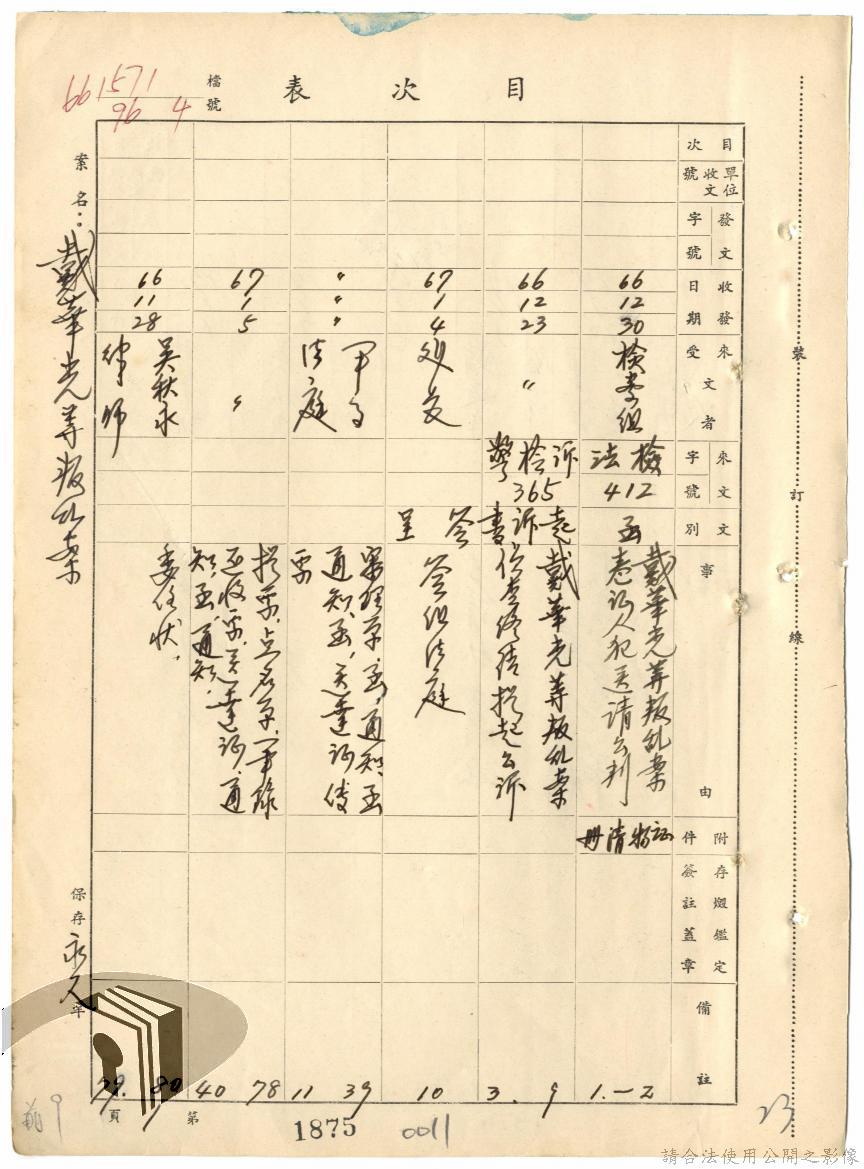 目次表
檔號
661571
96 4
案名：戴華光等叛亂案
保存永久年
目次
單位收文號
發文字號
收發日期
來受文者
來文字號
文別
事由
附件
存燬鑑定簽註蓋章
備註
66 12 30
檢察組
檢法
412
函
戴華光等叛亂案
卷証人犯送請公判
証物清冊
1.—2
66 12 23
〃
訴檢警
365
起訴書
戴華光等叛亂案
偵查終結提起公訴
3. 9
67 1 4
簽呈
簽組法庭
10
〃 〃 〃
軍事法庭
審理單、函、通知、函
通知、函、送達証傳
票
11 39
67 1 5
〃
提票、点名單、筆錄
還收票、送達証、通
知、函、通知、
40 78
66 11 28
吳秋永
律師
委任狀、
79. 80
第 頁
1875
0011
23
裝訂線
請合法使用公開之影像